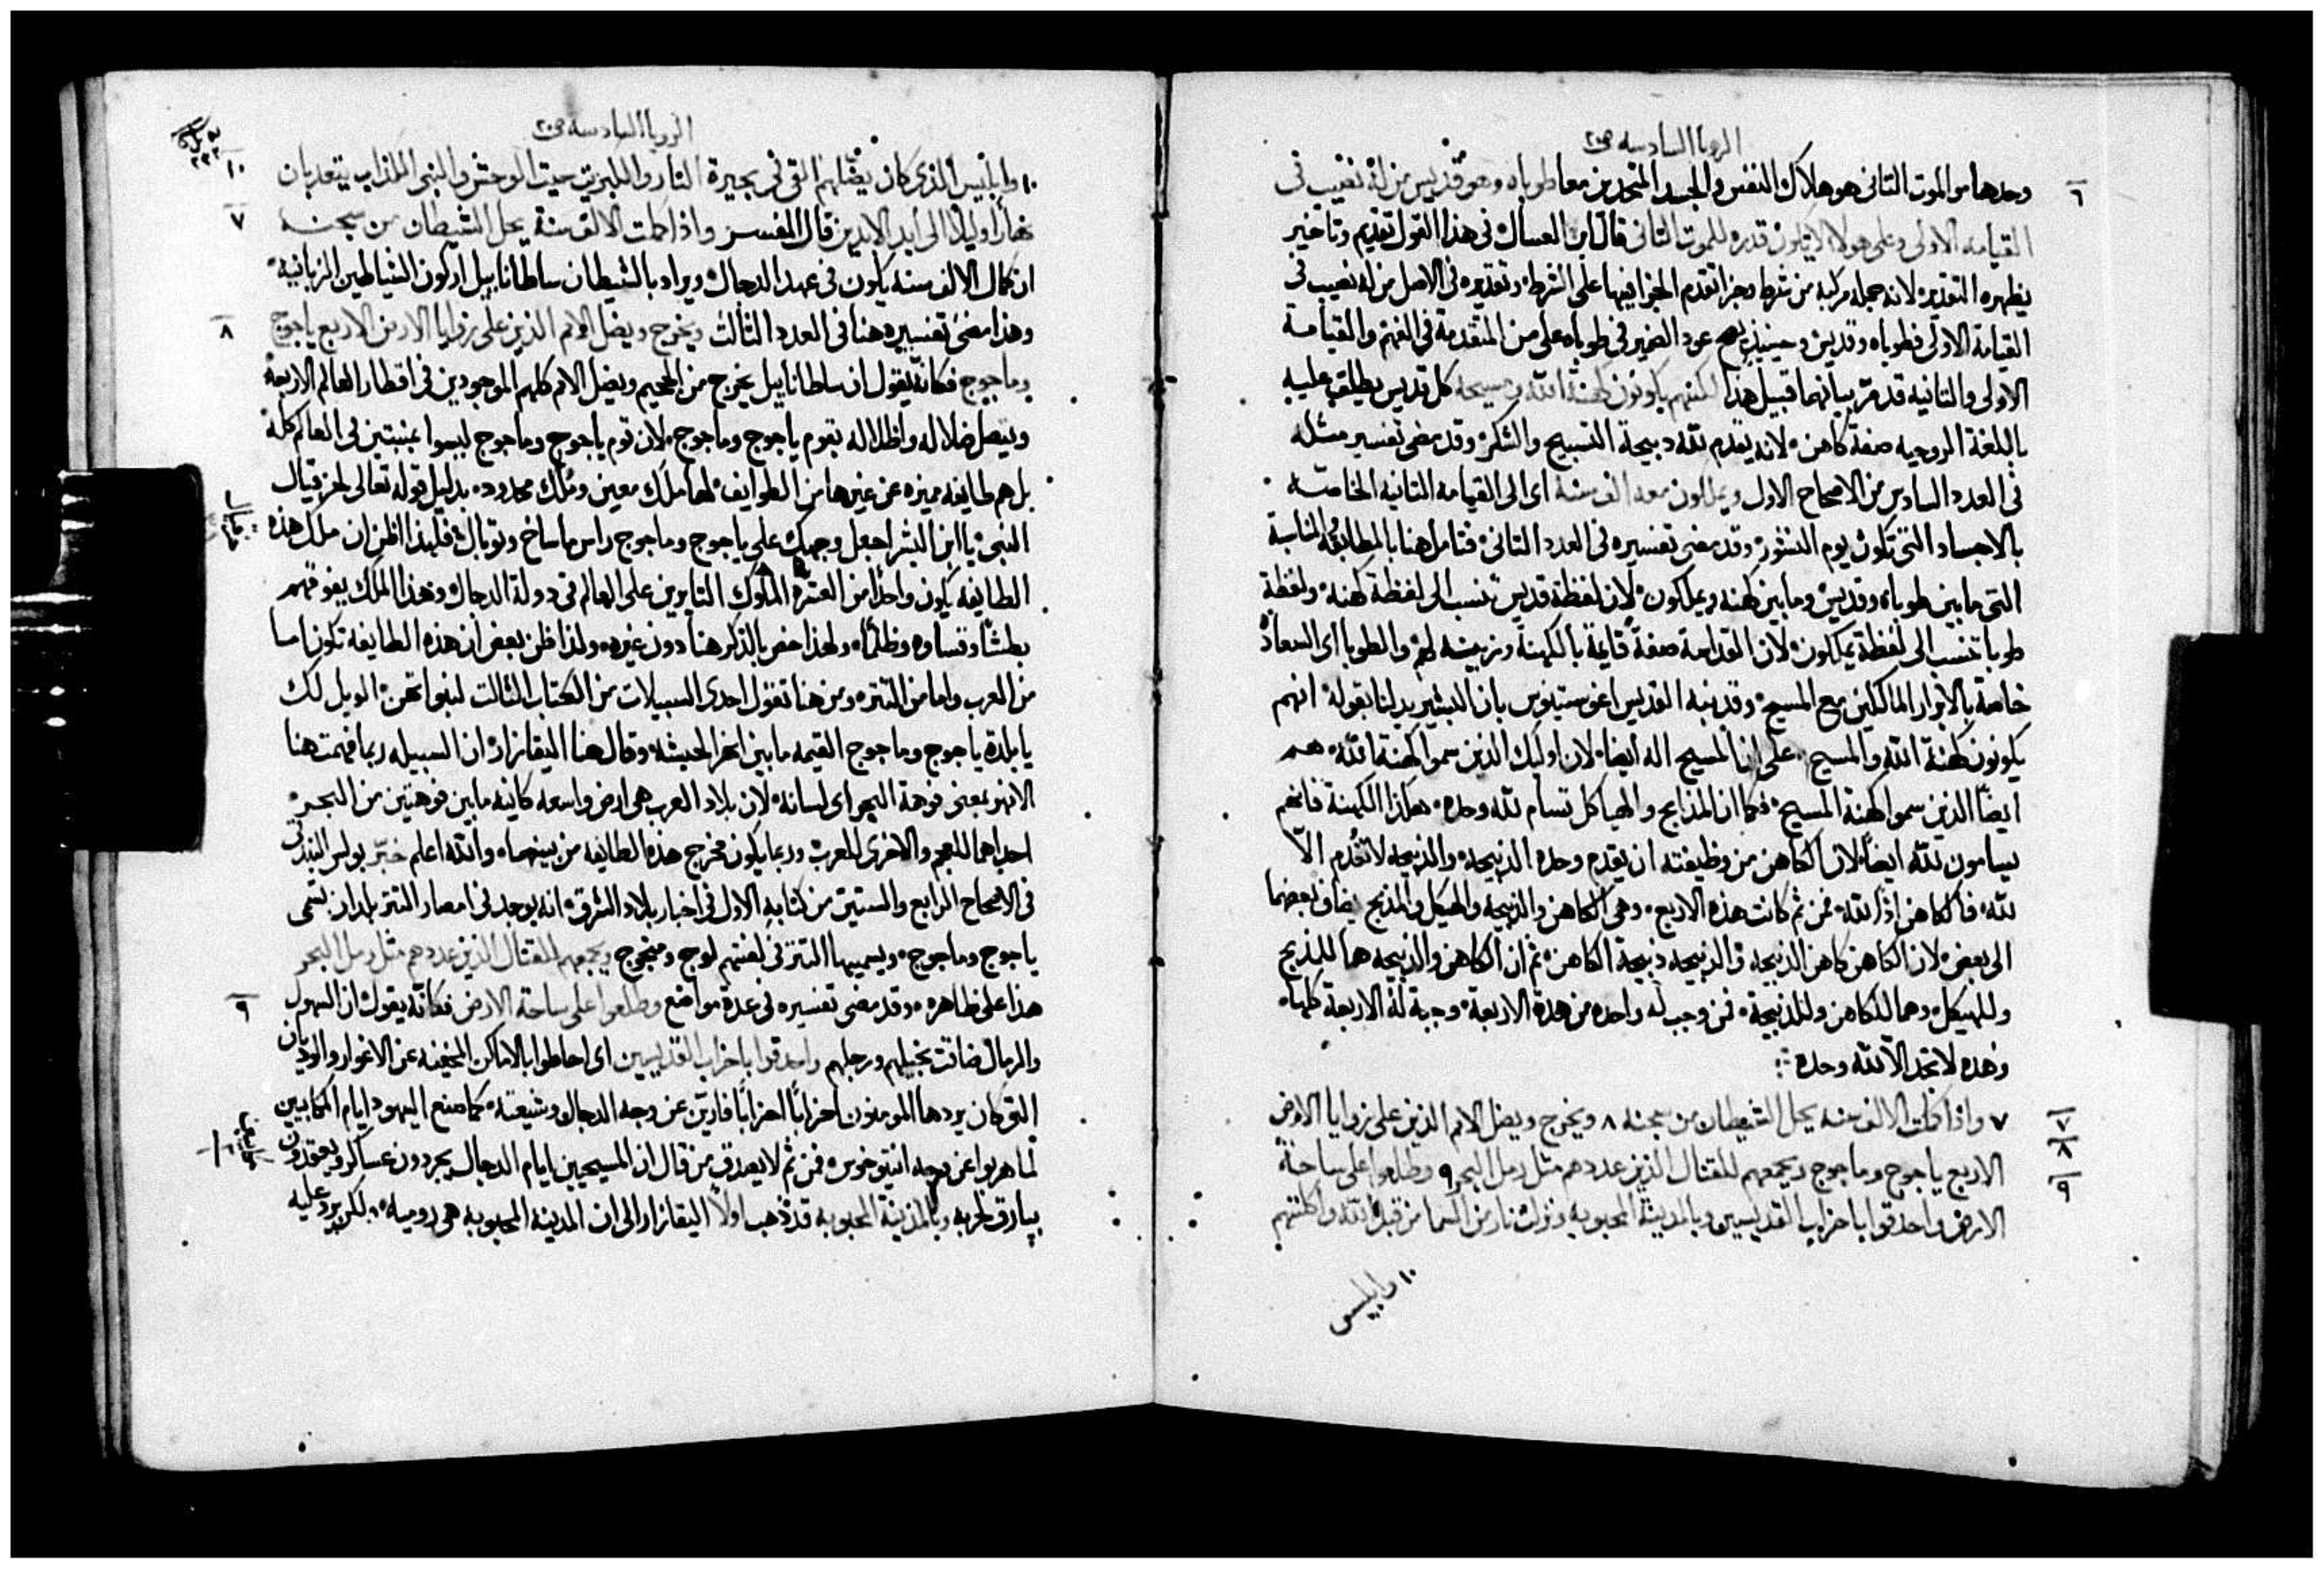 الرويا السادسه ص٢٠
٦
وحدها والموت الثاني هو هلاك النفس والجسد المتحدين معا طوباه وهو قديس من له نصيب في
القيامه الاولى وعلى هولا لا يكون قدره للموت الثاني قال ابن العسال في هذا القول تقديم وتاخير
يظهره التقدير لانه جمله مركبه من شرط وجزا تقدم الجزا فيها على الشرط وتقديره في الاصل من له نصيب في
القيامة الاولى فطوباه وقديس وحينيذ يصح عود الضمير في طوباه على من المتقدمة في الفهم والقيامة
الاولى والثانيه قد مر بيانهما قبيل هذا لكنهم يكونون كهنة الله ومسيحه كل قديس يطلق عليه
باللغة الروحيه صفة كاهن لانه يقدم لله دبيحة التسبيح والشكر وقد مضى تفسير مثله
في العدد السادس من الاصحاح الاول ويملكون معه الف سنة اى الى القيامه الثانيه الخاصه
بالاجساد التي تكون يوم النشور وقد مضى تفسيره في العدد الثاني فتامل هنا بالمطابقه والمناسبة
التي ما بين طوباه وقديس وما بين كهنه ويملكون لان لفظة قديس تنسب الى لفظة كهنه ولفظة
طوبا تنسب الى لفظة يملكون لان القداسة صفة قايمة بالكهنة وزينه لهم والطوبا اى السعادة
خاصة بالابرار المالكين مع المسيح وقد نبه القديس اغوستينوس بان البشير يدلنا بقوله انهم
يكونون كهنة الله والمسيح على ان المسيح اله ايضا لان اوليك الذين سموا كهنة الله هم
ايضا الذين سموا كهنة المسيح فكما ان المذابح والهياكل تسام لله وحده هكذا الكهنة فانهم
يسامون لله ايضا لان الكاهن من وظيفته ان يقدم وحده الذبيحه والذبيحه لا تقدم الا
لله فالكاهن اذا لله فمن ثم كانت هذه الاربع وهي الكاهن والذبيحه والهيكل والمذبح يضاف بعضها
الى بعض لان الكاهن كاهن الذبيحه والذبيحه ذبيحة الكاهن ثم ان الكاهن والذبيحه هما للمذبح
وللهيكل وهما للكاهن وللذبيحة فمن وجب له واحده من هذة الاربعة وجبة له الاربعة كلها
وهذه لا تجد الا لله وحده
٧ ٨ ٩
٧ واذا كملت الالف سنه يحل الشيطان من سجنه ٨ ويخرج ويضل الامم الذين على زوايا الارض
الاربع ياجوج وماجوج ويجمعهم للقتال الذين عددهم مثل رمل البحر ٩ وطلعوا على ساحة
الارض واحدقوا باحزاب القديسين وبالمدينة المحبوبه ونزلت نار من السما من قبل الله واكلتهم
١٠ وابليس
الرويا السادسه ص٢٠
١٠
١٠ وابليس الذي كان يضلهم القي في بحيرة النار والكبريت حيث الوحش والنبي الكذاب يتعدبان
٧
نهارا وليلا الى ابد الابدين قال المفسر واذا كملت الالف سنة يحل الشيطان من سجنه
ان كمال الالف سنه يكون في عهد الدجال ويراد بالشيطان ساطانابيل اركون الشياطين الزبانيه
٨
وهذا مضى تفسيره هنا في العدد الثالث ويخرج ويضل الامم الذين على زوايا الارض الاربع ياجوج
وماجوج فكانه يقول ان ساطانابيل يخرج من الجحيم ويضل الامم كلهم الموجودين في اقطار العالم الاربعة
ويتصل ضلاله واظلاله بقوم ياجوج وماجوج لان قوم ياجوج وماجوج ليسوا بمنبثين في العالم كله
بل هم طايفه مميزه عن غيرها من الطوايف لها ملك معين وملك محدود بدليل قوله تعالى لحزقيال
النبي يا ابن البشر اجعل وجهك على ياجوج وماجوج راس ماساخ وتوبال فلهذا اظن ان ملك هذه
الطايفه يكون واحدا من العشرة الملوك الثايرين على العالم في دولة الدجال وهذا الملك يفوقهم
بطشا وقساوه وظلما ولهذا خص بالذكر هنا دون غيره ولذا ظن بعض ان هذه الطايفه تكون اما
من العرب واما من التتر ومن هنا تقول احدى السبيلات من الكتاب الثالث لنبواتهن الويل لك
يا بلدة ياجوج وماجوج القيمه ما بين انهر الحبشه وقال هنا اليقازار ان السبيله ربما فهمت هنا
الانهر بمعنى فوهة البحر اى لسانه لان بلاد العرب هي ارض واسعه كاينه ما بين فوهتين من البحر
احداهما للعجم والاخرى للعرب وربما يكون مخرج هذه الطايفه من بينهما والله اعلم خبّر بولس البندقي
في الاصحاح الرابع والستين من كتابه الاول في اخبار بلاد الشرق انه يوجد في امصار التتر بلدان تسمى
ياجوج وماجوج ويسميها التتر في لغتهم لوج ومنجوج ويجمعهم للقتال الذين عددهم مثل رمل البحر
٩
هذا على ظاهره وقد مضى تفسيره في عدة مواضع وطلعوا على ساحة الارض فكانه يقول ان السهول
والرمال ضاقت بخيلهم ورجلهم واحدقوا باحزاب القديسين اى احاطوا بالاماكن المخفيه عن الاغوار والوديان
التي كان يردها المومنون احزابا احزابا فارين عن وجه الدجال وشيعته كما صنع اليهود ايام المكابيين
لما هربوا عن وجه انتيوخوس فمن ثم لا يصدق من قال ان المسيحيين ايام الدجال يجردون عساكر ويعقدون
بيارق لحربه وبالمدينة المحبوبه قد ذهب اولا اليقازار الى ان المدينه المحبوبه هي روميه لكن يرد عليه